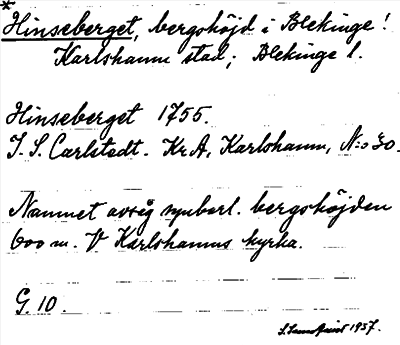 *
Hinseberget, bergshöjd i Blekinge!
Karlshamn stad; Blekinge l.
Hinseberget 1755.
J. S. Carlstedt. KrA, Karlshamn, N:o 30.
Namnet avsåg synbarl. bergshöjden
600 m. V Karlshamns kyrka.
G. 10.
S. Sundquist 1937.